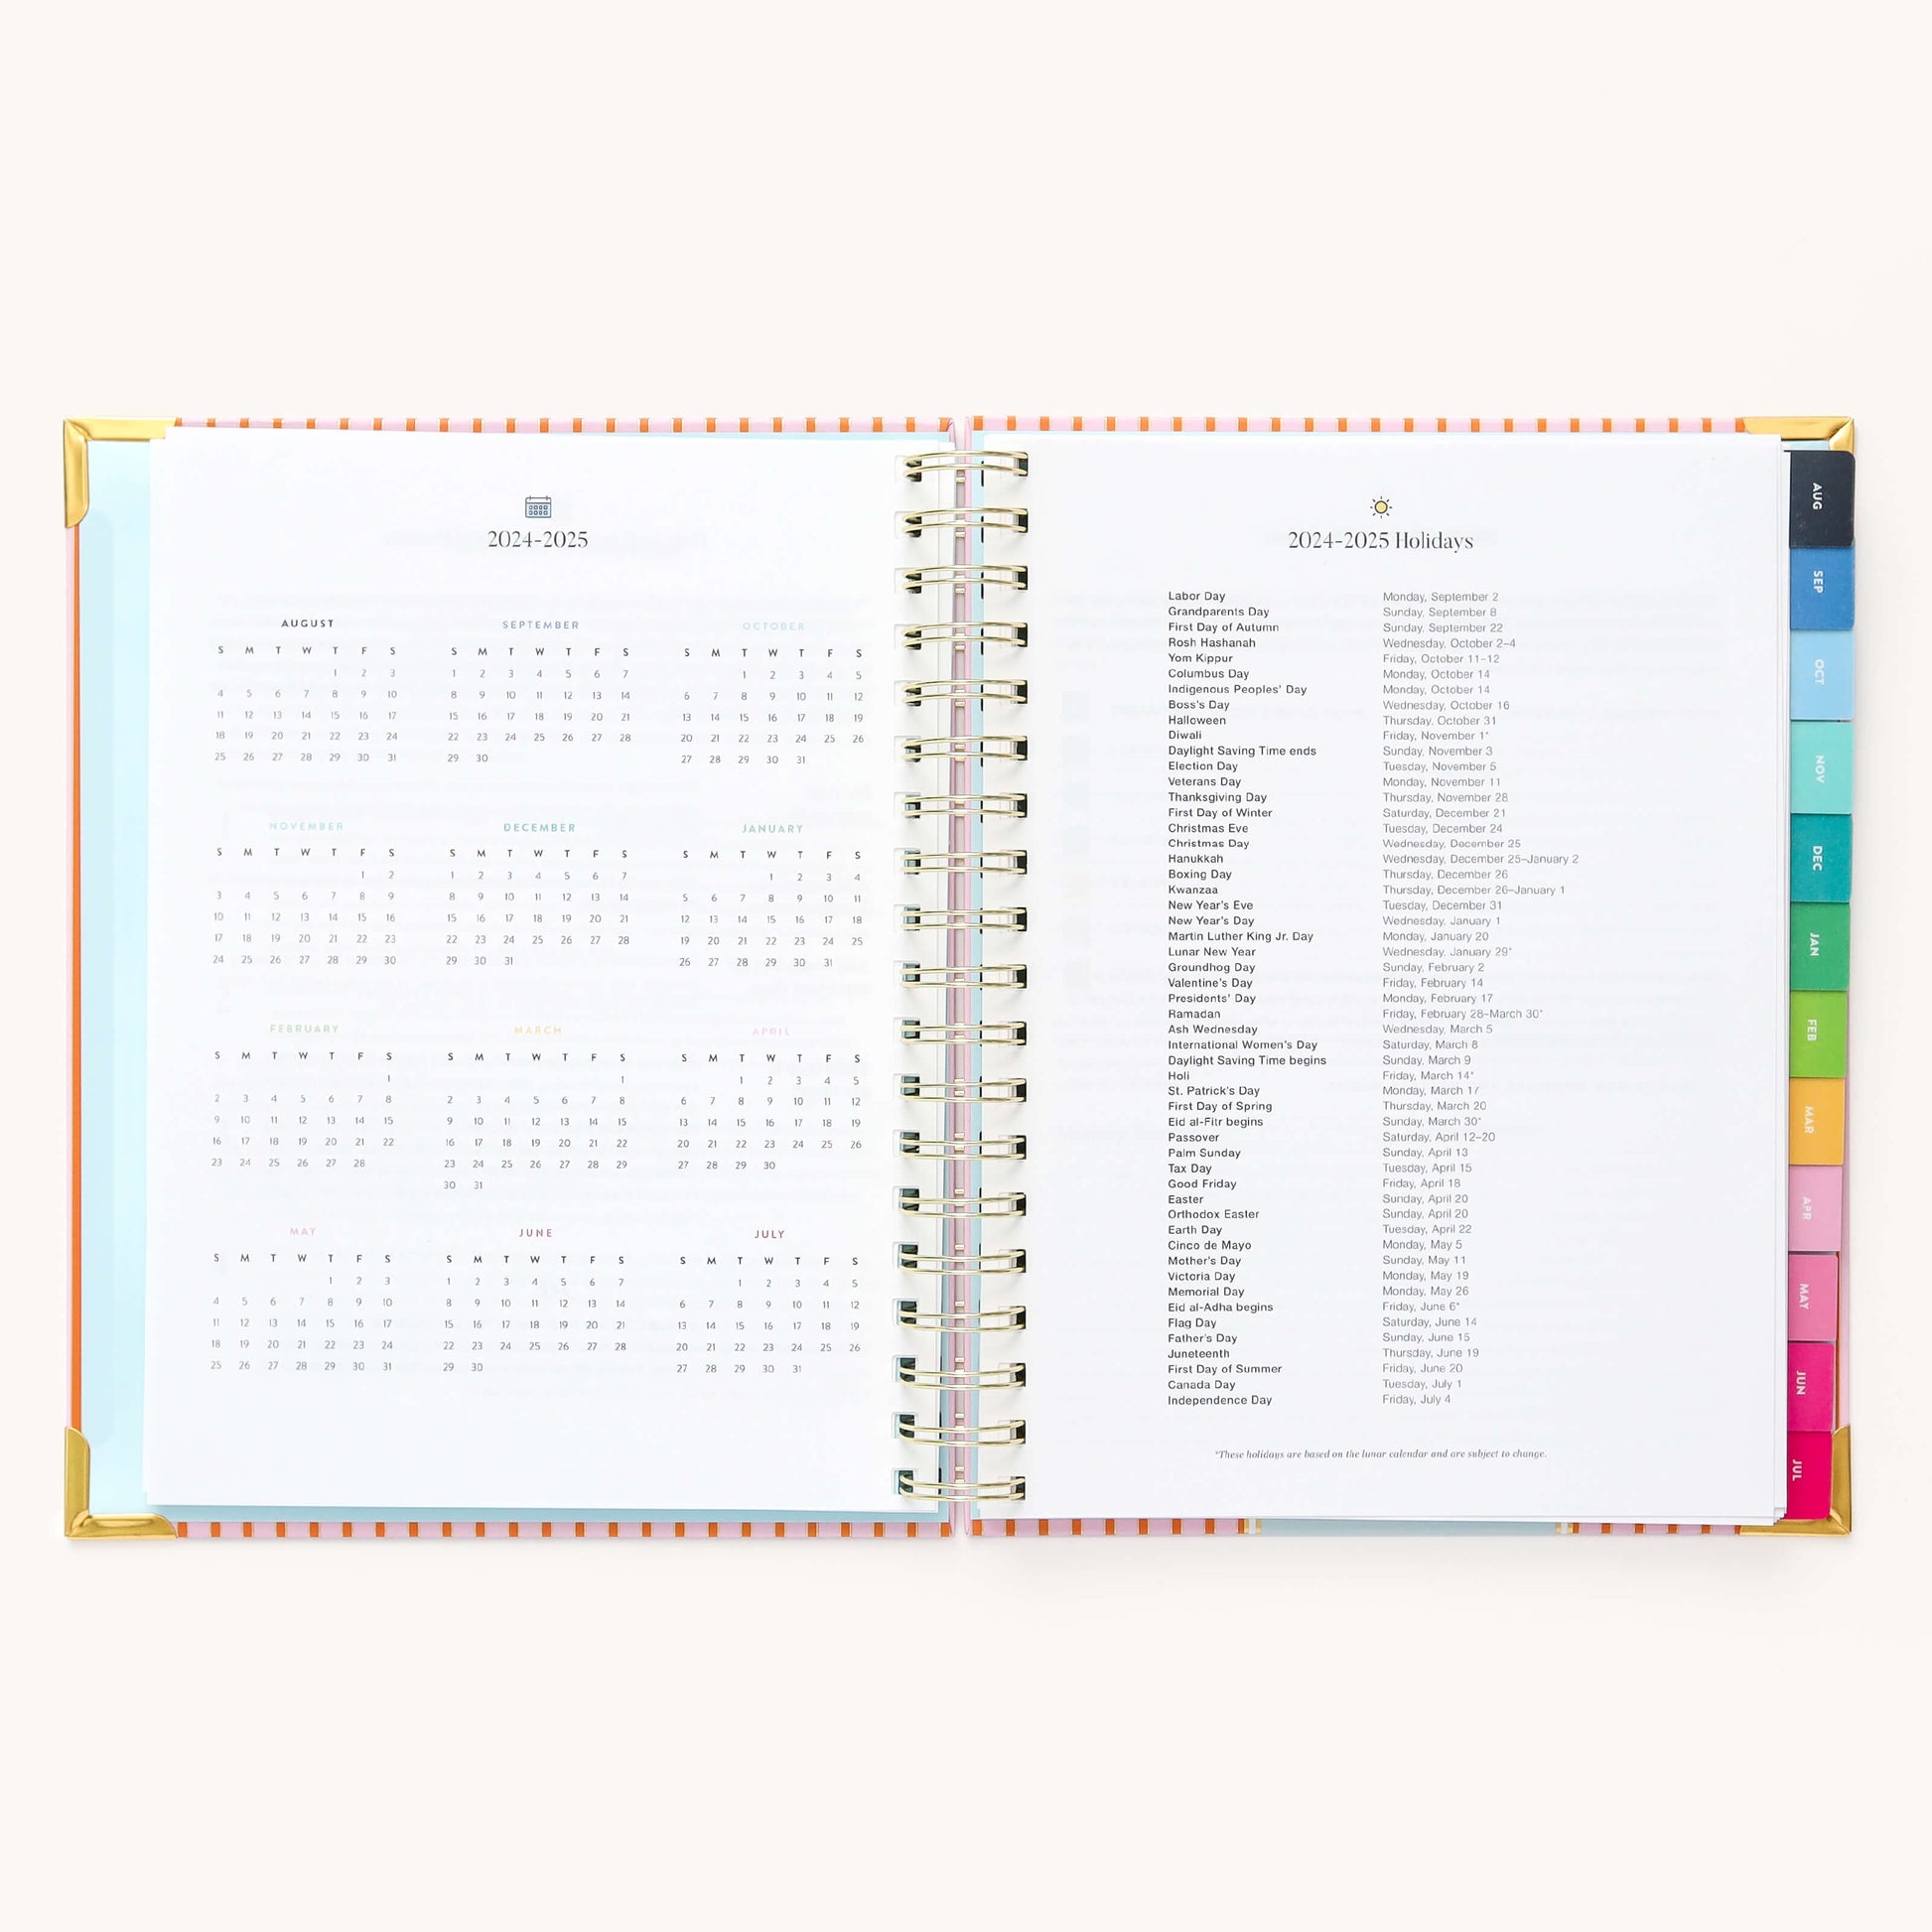 2024-2025
AUGUST
S M T W T F S
1 2 3
4 5 6 7 8 9 10
11 12 13 14 15 16 17
18 19 20 21 22 23 24
25 26 27 28 29 30 31
SEPTEMBER
S M T W T F S
1 2 3 4 5 6 7
8 9 10 11 12 13 14
15 16 17 18 19 20 21
22 23 24 25 26 27 28
29 30
OCTOBER
S M T W T F S
1 2 3 4 5
6 7 8 9 10 11 12
13 14 15 16 17 18 19
20 21 22 23 24 25 26
27 28 29 30 31
NOVEMBER
S M T W T F S
1 2
3 4 5 6 7 8 9
10 11 12 13 14 15 16
17 18 19 20 21 22 23
24 25 26 27 28 29 30
DECEMBER
S M T W T F S
1 2 3 4 5 6 7
8 9 10 11 12 13 14
15 16 17 18 19 20 21
22 23 24 25 26 27 28
29 30 31
JANUARY
S M T W T F S
1 2 3 4
5 6 7 8 9 10 11
12 13 14 15 16 17 18
19 20 21 22 23 24 25
26 27 28 29 30 31
FEBRUARY
S M T W T F S
1
2 3 4 5 6 7 8
9 10 11 12 13 14 15
16 17 18 19 20 21 22
23 24 25 26 27 28
MARCH
S M T W T F S
1
2 3 4 5 6 7 8
9 10 11 12 13 14 15
16 17 18 19 20 21 22
23 24 25 26 27 28 29
30 31
APRIL
S M T W T F S
1 2 3 4 5
6 7 8 9 10 11 12
13 14 15 16 17 18 19
20 21 22 23 24 25 26
27 28 29 30
MAY
S M T W T F S
1 2 3
4 5 6 7 8 9 10
11 12 13 14 15 16 17
18 19 20 21 22 23 24
25 26 27 28 29 30 31
JUNE
S M T W T F S
1 2 3 4 5 6 7
8 9 10 11 12 13 14
15 16 17 18 19 20 21
22 23 24 25 26 27 28
29 30
JULY
S M T W T F S
1 2 3 4 5
6 7 8 9 10 11 12
13 14 15 16 17 18 19
20 21 22 23 24 25 26
27 28 29 30 31
2024-2025 Holidays
Labor Day Monday, September 2
Grandparents Day Sunday, September 8
First Day of Autumn Sunday, September 22
Rosh Hashanah Wednesday, October 2–4
Yom Kippur Friday, October 11–12
Columbus Day Monday, October 14
Indigenous Peoples' Day Monday, October 14
Boss's Day Wednesday, October 16
Halloween Thursday, October 31
Diwali Friday, November 1*
Daylight Saving Time ends Sunday, November 3
Election Day Tuesday, November 5
Veterans Day Monday, November 11
Thanksgiving Day Thursday, November 28
First Day of Winter Saturday, December 21
Christmas Eve Tuesday, December 24
Christmas Day Wednesday, December 25
Hanukkah Wednesday, December 25–January 2
Boxing Day Thursday, December 26
Kwanzaa Thursday, December 26–January 1
New Year's Eve Tuesday, December 31
New Year's Day Wednesday, January 1
Martin Luther King Jr. Day Monday, January 20
Lunar New Year Wednesday, January 29*
Groundhog Day Sunday, February 2
Valentine's Day Friday, February 14
Presidents' Day Monday, February 17
Ramadan Friday, February 28–March 30*
Ash Wednesday Wednesday, March 5
International Women's Day Saturday, March 8
Daylight Saving Time begins Sunday, March 9
Holi Friday, March 14*
St. Patrick's Day Monday, March 17
First Day of Spring Thursday, March 20
Eid al-Fitr begins Sunday, March 30*
Passover Saturday, April 12–20
Palm Sunday Sunday, April 13
Tax Day Tuesday, April 15
Good Friday Friday, April 18
Easter Sunday, April 20
Orthodox Easter Sunday, April 20
Earth Day Tuesday, April 22
Cinco de Mayo Monday, May 5
Mother's Day Sunday, May 11
Victoria Day Monday, May 19
Memorial Day Monday, May 26
Eid al-Adha begins Friday, June 6*
Flag Day Saturday, June 14
Father's Day Sunday, June 15
Juneteenth Thursday, June 19
First Day of Summer Friday, June 20
Canada Day Tuesday, July 1
Independence Day Friday, July 4
*These holidays are based on the lunar calendar and are subject to change.
AUG
SEP
OCT
NOV
DEC
JAN
FEB
MAR
APR
MAY
JUN
JUL